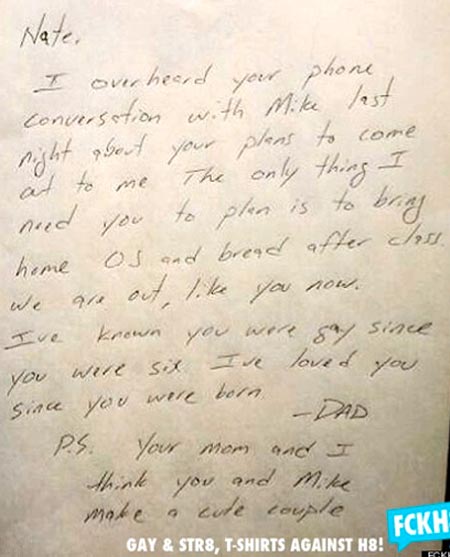 Nate,
I overheard your phone
conversation with Mike last
night about your plans to come
out to me The only thing I
need you to plan is to bring
home OJ and bread after class.
We are out, like you now.
I've known you were gay since
you were six. I've loved you
since you were born.
-DAD
P.S. Your mom and I
think you and Mike
make a cute couple
FCKH
GAY & STR8, T-SHIRTS AGAINST H8!